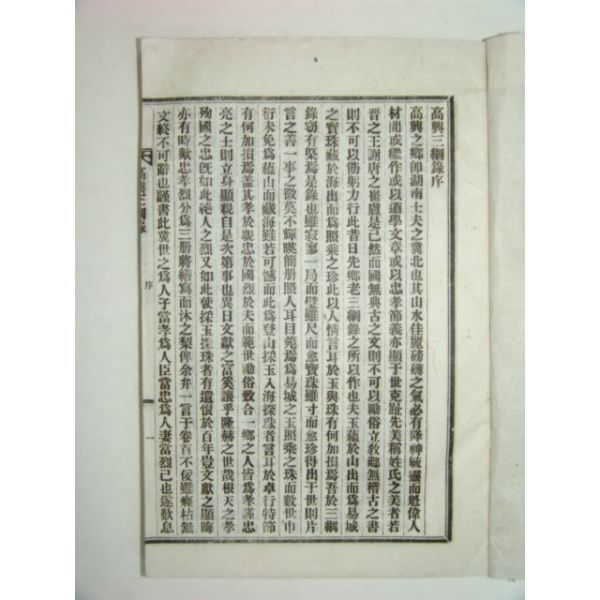 高興三綱錄序
高興之鄕卽湖南士夫之冀北也其山水佳麗磅礴之氣必有降神毓靈而魁偉人
材間或繼作或以道學文章或以忠孝節義亦顯于世克趾先美稱姓氏之美者若
晉之王謝唐之崔盧是已然而國無典古之文則不可以勵俗立敎鄕無稽古之書
則不可以勵躬力行此昔日先鄕老三綱錄之所以作也夫玉蘊於山出而爲易城
之寶珠藏於海出而爲照乘之珍此以人情言耳於玉與珠有何加損焉吾於三綱
錄竊有槩焉是錄也雖寂寥一局而璧雖尺而愈寶珠雖寸而愈珍得出于世則片
言之善一事之微莫不輝暎簡册照人耳目菀焉爲易城之玉照乘之珠而數世巾
衍未免爲蘊山而藏海雖若可憾而此爲登山採玉入海探珠者言耳於卓行特節
有何加損焉盖其孝於親忠於國烈於夫而範世勵俗致合一鄕之人皆爲孝謹忠
亮之士則立身顯親自是次第事也異日文獻之富奚讓乎隆赫之世哉根天之孝
殉國之忠旣如此絶人之烈又如此使採玉探珠者有遺恨於百年豈文獻之顯晦
亦有時歟忠孝烈分爲三册將繕寫而沐之梨俾余弁一言于卷首不佞雖癃枯無
文終不可辭也謹書此冀世之爲人子當孝爲人臣當忠爲人妻當烈已也遂歎息
高興三綱錄
序
一